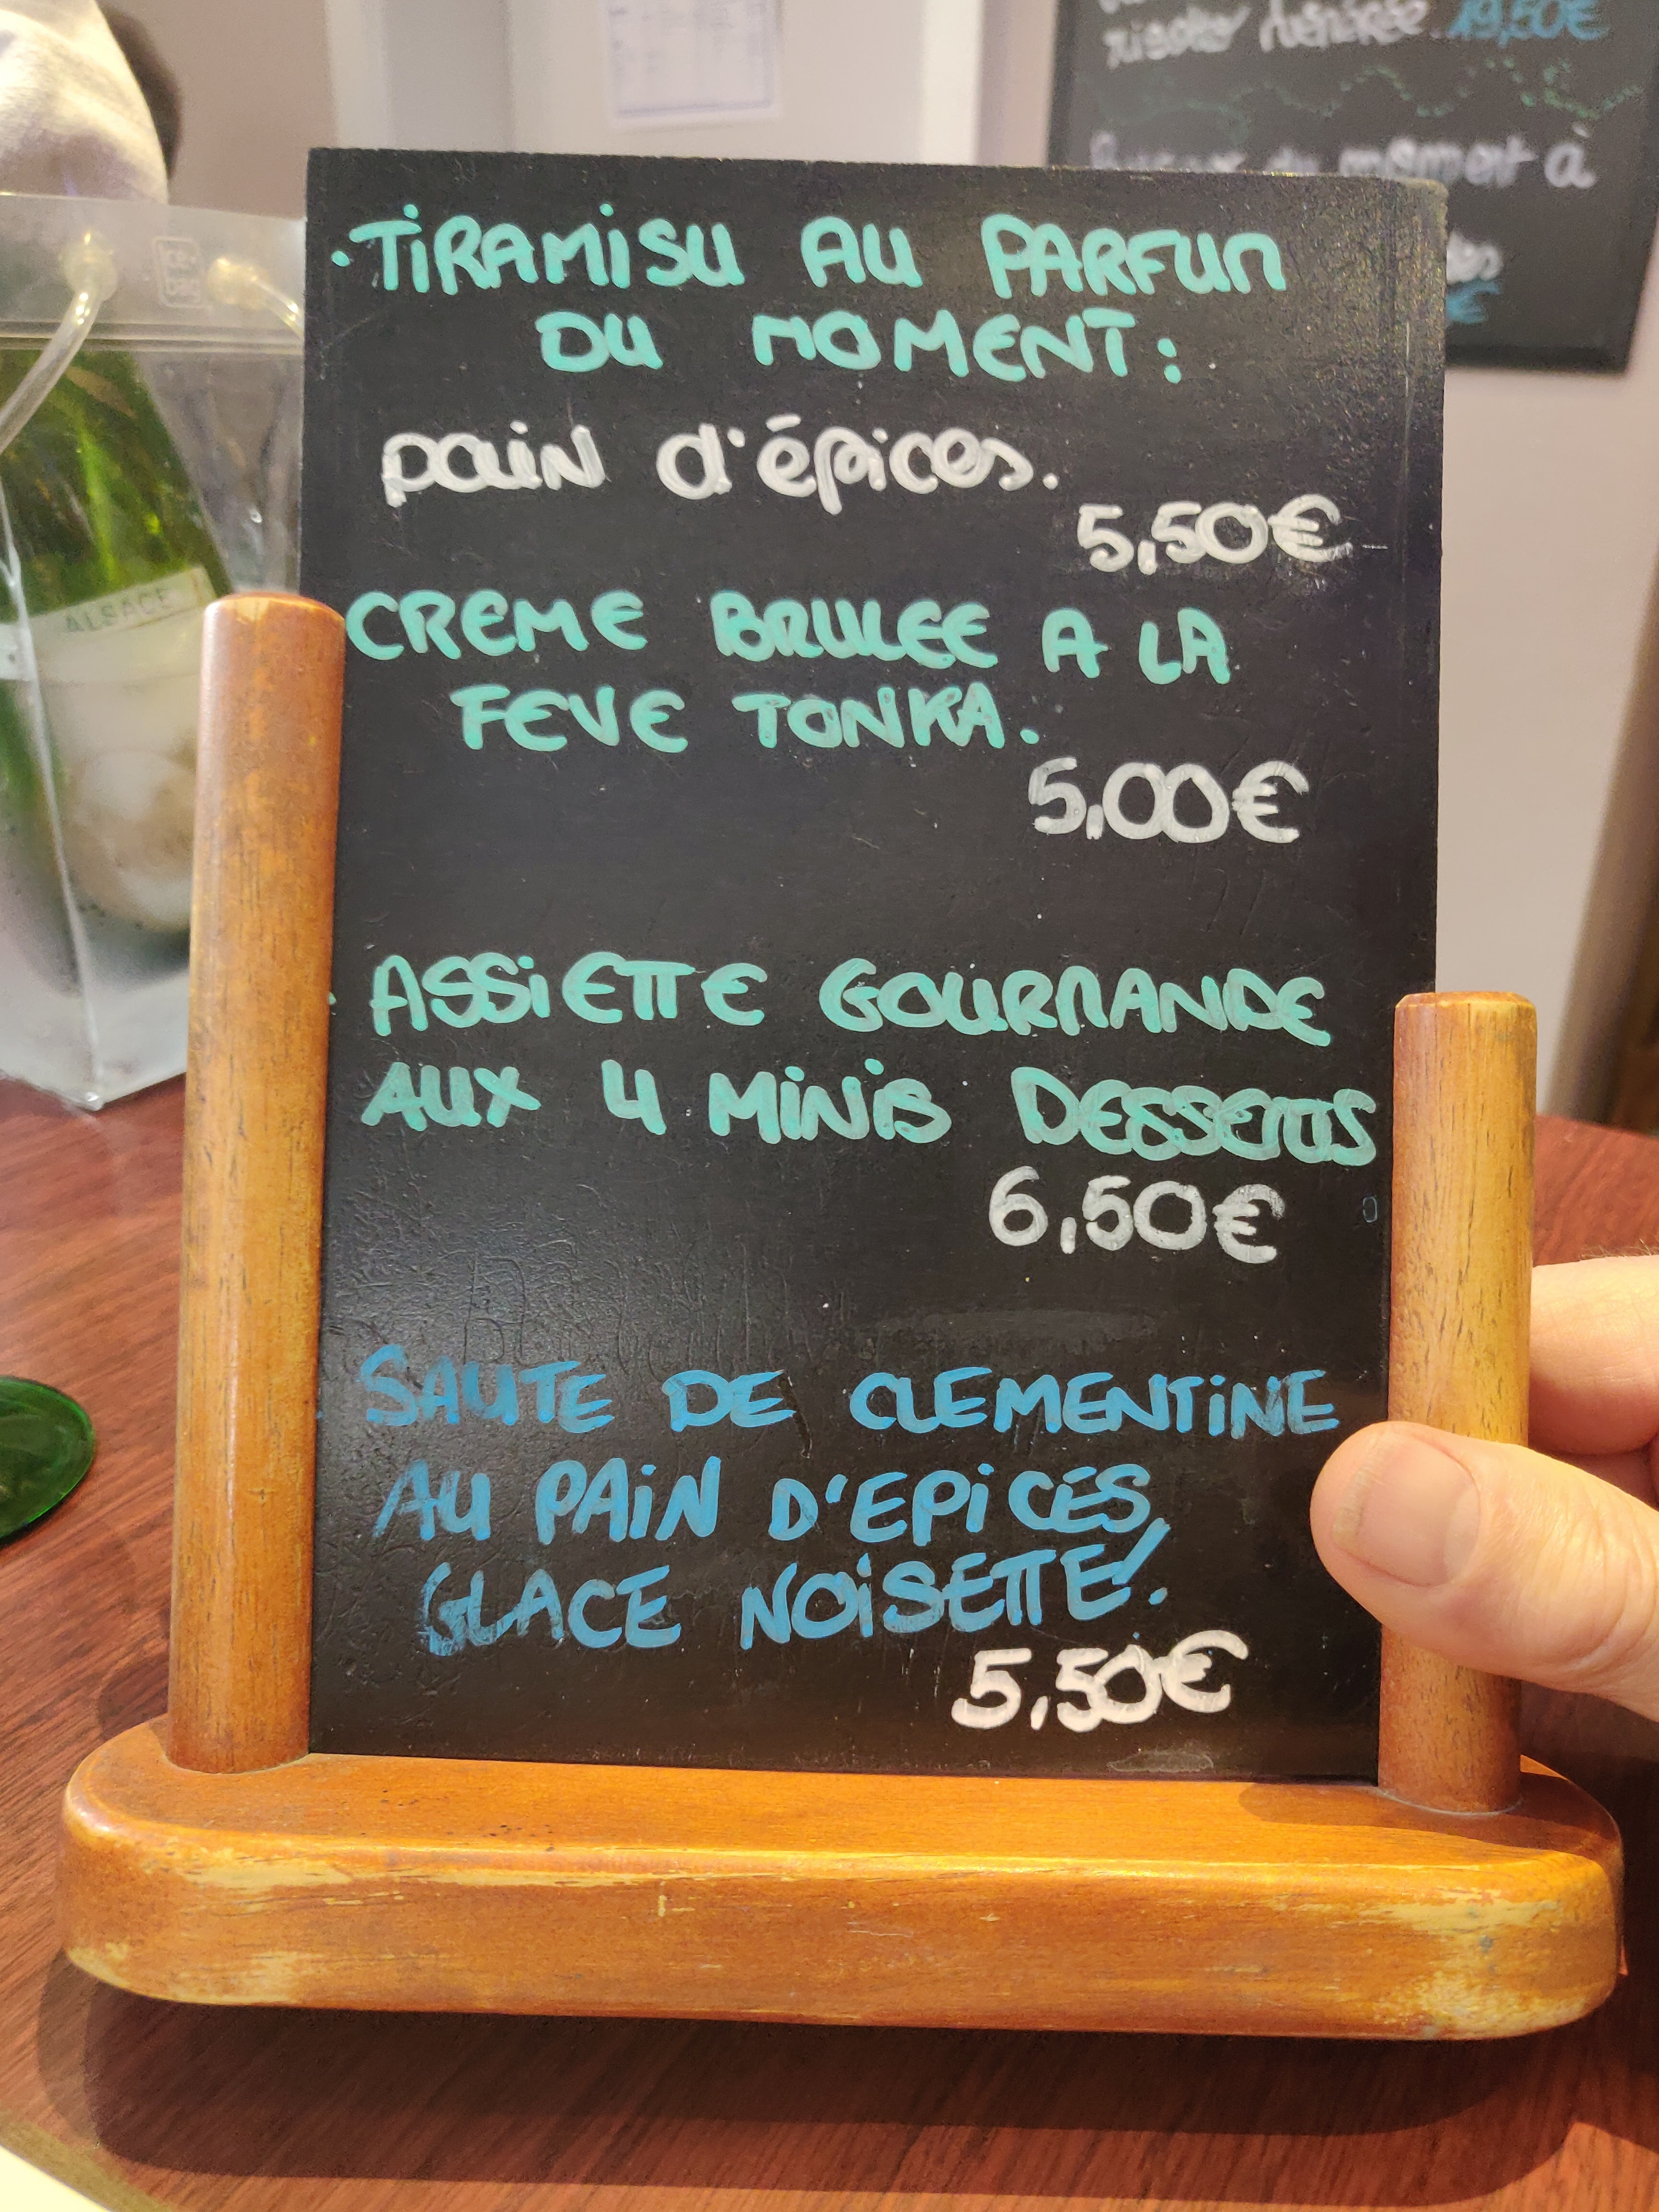 risotto
19,50€
moment à
€
ALSACE
·TiRAMiSU AU PARFUM
DU MOMENT:
pain d'épices.
5,50€
CREME BRULEE A LA
FEVE TONKA.
5,00€
· ASSiETTE GOURMANDE
AUX 4 MiNiS DESSERTS
6,50€
SAUTE DE CLEMENTiNE
AU PAiN D'EPiCES,
GLACE NOiSETTE!.
5,50€